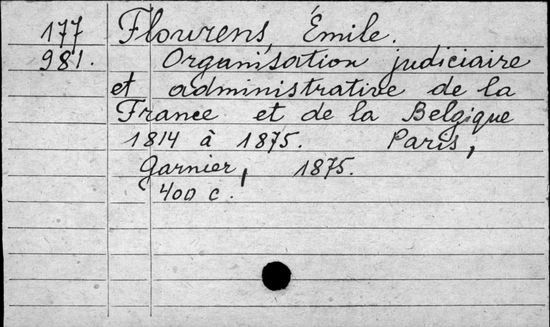 177 Flourens, Émile.
981. Organisation judiciaire
et administrative de la
France et de la Belgique
1814 à 1875. Paris,
Garnier, 1875.
400 c.